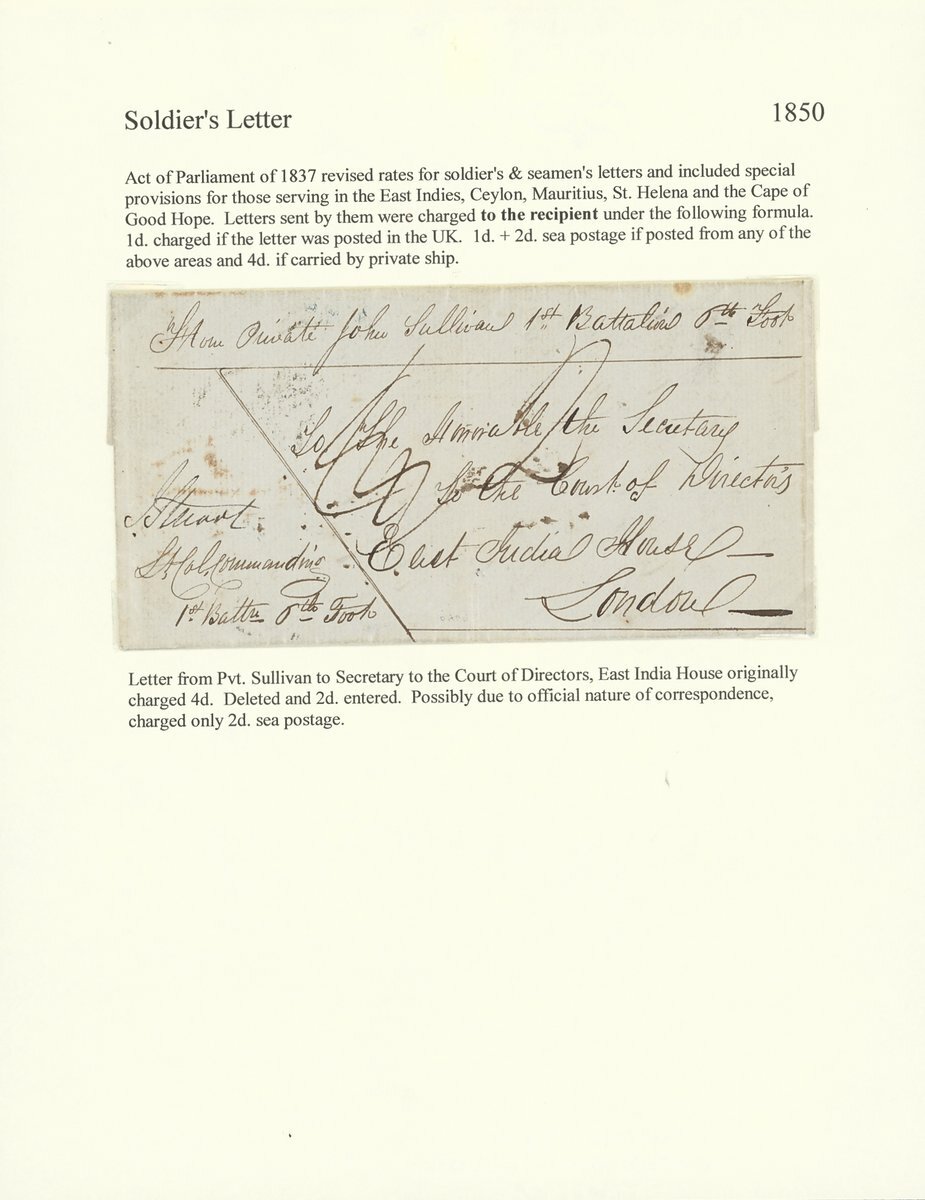 Soldier's Letter
1850
Act of Parliament of 1837 revised rates for soldier's & seamen's letters and included special
provisions for those serving in the East Indies, Ceylon, Mauritius, St. Helena and the Cape of
Good Hope.  Letters sent by them were charged to the recipient under the following formula.
1d. charged if the letter was posted in the UK.  1d. + 2d. sea postage if posted from any of the
above areas and 4d. if carried by private ship.
From Private John Sullivan 1st Battalion 6th Foot
To The Honorable the Secretary
To the Court of Directors
East India House
London
Lt. Col. Commanding
1st Battn 6th Foot
Letter from Pvt. Sullivan to Secretary to the Court of Directors, East India House originally
charged 4d.  Deleted and 2d. entered.  Possibly due to official nature of correspondence,
charged only 2d. sea postage.